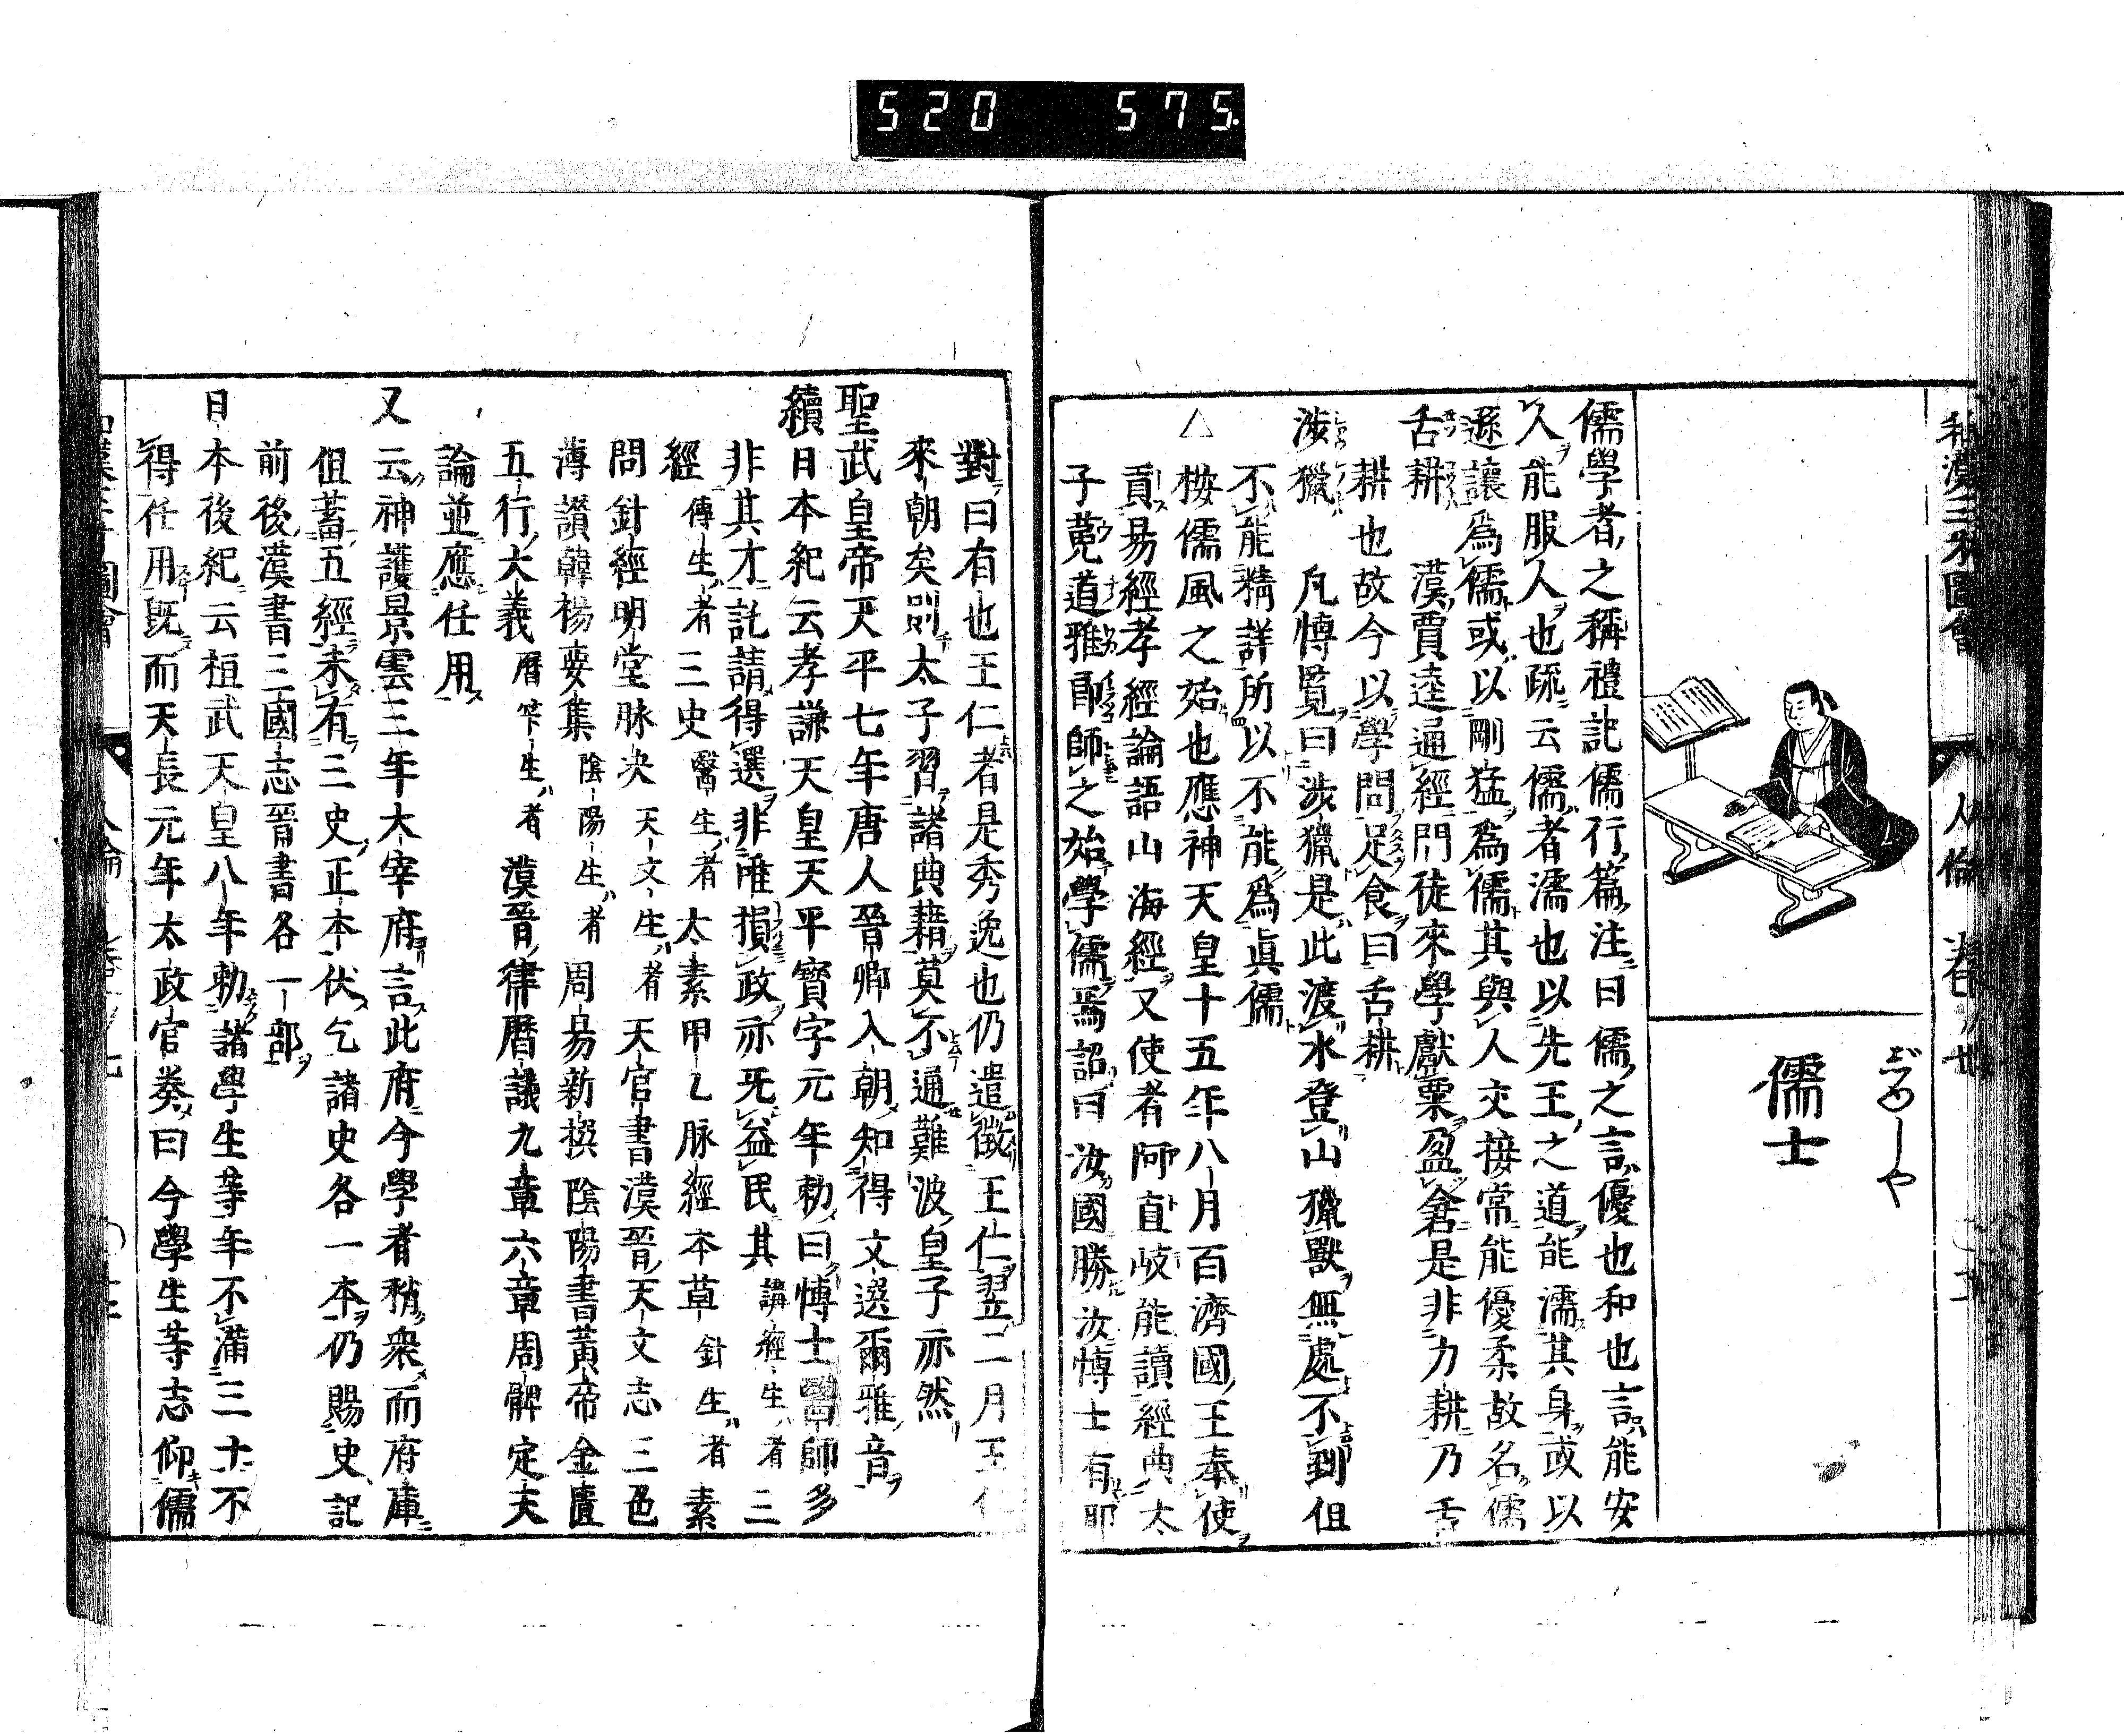 520 575
和漢三才圖會
人倫
儒士
儒學者之稱禮記儒行篇注曰儒之言優也和也言能安
人能服人也疏云儒者濡也以先王之道能濡其身或以
遜讓爲儒或以剛猛爲儒其與人交接常能優柔故名儒
舌耕 漢賈逵通經門徒來學獻粟盈倉是非力耕乃舌
耕也故今以學問足食曰舌耕
涉獵 凡博覧曰涉獵是此渡水登山獵獸無處不到但
不能精詳所以不能爲眞儒
△按儒風之始也應神天皇十五年八月百濟國王奉使
貢易經孝經論語山海經又使者阿直岐能讀經典太
子菟道雅郎師之始學儒焉詔曰汝國勝汝博士有耶
對曰有也王仁者是秀逸也仍遣徵王仁翌二月王仁
來朝矣則太子習諸典藉莫不通難波皇子亦然
聖武皇帝天平七年唐人晉卿入朝知得文選爾雅音
續日本紀云孝謙天皇天平寳字元年勅曰博士醫師多
非其才託請得選非唯損政亦旡益民其講經生者三
經傳生者三史醫生者太素甲乙脉經本草針生者素
問針經明堂脉決天文生者天官書漢晉天文志三色
薄讃韓楊要集陰陽生者周易新撰陰陽書黃帝金匱
五行大義曆竿生者漢晉律曆議九章六章周髀定天
論並應任用
又云神護景雲三年大宰府言此府今學者稍衆而府庫
但蓄五經未有三史正本伏乞諸史各一本仍賜史記
前後漢書三國志晉書各一部
日本後紀云桓武天皇八年勅諸學生等年不滿三十不
得任用既而天長元年太政官奏曰今學生等志仰儒